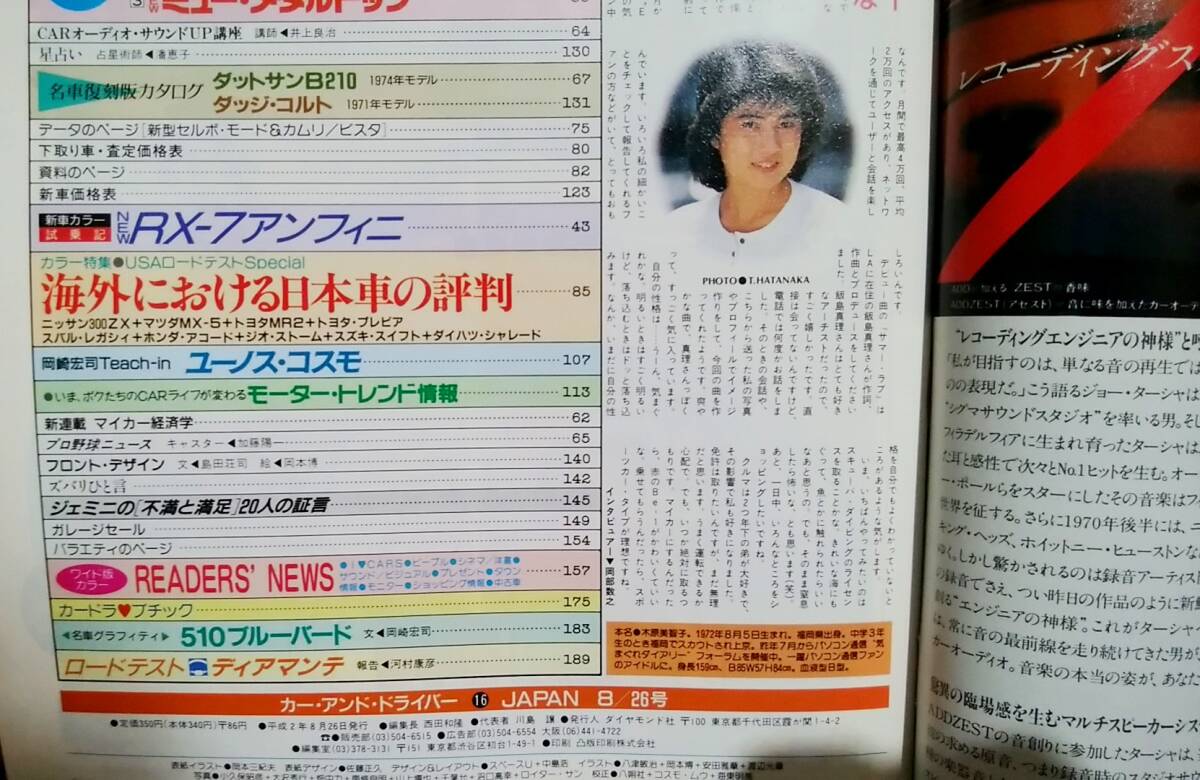 3 NEW ミュー・メタルトップ
CARオーディオ・サウンドUP講座 講師◀井上良治 64
星占い 占星術師◀潘恵子 130
名車復刻版カタログ
ダットサンB210 1974年モデル 67
ダッジ・コルト 1971年モデル 131
データのページ[新型セルボ・モード&カムリ/ビスタ] 75
下取り車・査定価格表 80
資料のページ 82
新車価格表 123
新車カラー試乗記 NEW RX-7アンフィニ 43
カラー特集●USAロードテストSpecial
海外における日本車の評判 85
ニッサン300ZX+マツダMX-5+トヨタMR2+トヨタ・プレビア
スバル・レガシィ+ホンダ・アコード+ジオ・ストーム+スズキ・スイフト+ダイハツ・シャレード
岡崎宏司Teach-in ユーノス・コスモ 107
●いま、ボクたちのCARライフが変わる モーター・トレンド情報 113
新連載 マイカー経済学 62
プロ野球ニュース キャスター◀加藤陽一 65
フロント・デザイン 文◀島田荘司 絵◀岡本博 140
ズバリひと言 142
ジェミニの[不満と満足]20人の証言 145
ガレージセール 149
バラエティのページ 154
ワイド版カラー READERS' NEWS 157
●I♥CARS●ピープル●シネマ/洋画●
サウンド/ビジュアル●プレゼント●タウン
情報●モニター●ショッピング情報●中古車
カードラ♥ブチック 175
◀名車グラフィティ▶ 510ブルーバード 文◀岡崎宏司 183
ロードテスト ディアマンテ 報告◀河村康彦 189
カー・アンド・ドライバー 16 JAPAN 8/26号
●定価350円(本体340円)〒86円 ●平成2年8月26日発行 ●編集長 西田和隆 ●代表者 川島 譲 ●発行人 ダイヤモンド社 〒100 東京都千代田区霞が関1-4-2
☎●販売部(03)504-6515 ●広告部(03)504-6554 大阪(06)441-4722
●編集室(03)378-3131 〒151 東京都渋谷区初台1-49-1 ●印刷 凸版印刷株式会社
表紙イラスト●岡本三紀夫 表紙デザイン●佐藤正久 デザイン&レイアウト●スペースU+中島浩 イラスト●八津敏治+岡本博+安田雅章+渡辺光章
なんです。月間で最高4万回、平均
2万回のアクセスがあり、ネットワ
ークを通じてユーザーと会話を楽し
んでいます。いろいろ私の細かいこ
とをチェックして報告してくれるフ
ァンの方などがいて、とってもおも
PHOTO●T.HATANAKA
しろいんです。
デビュー曲の『サマー・ラブ』は
LAに在住の飯島真理さんが作詞、
作曲とプロデュースをしてください
ました。
飯島真理さんはとても好き
なアーチストだったので、
すっごく嬉しかったです。直
接は会ってないんですけど、
電話では何度かお話をしま
した。そのときの会話や、
こちらから送った私の写真
やプロフィールでイメージ
作りをして、今回の曲を作
ってくれたようです。爽や
かな曲で、真理さんっぽく
って、すっごく気に入っています。
自分の性格は……うーん、気まぐ
れかな。明るいときはすごく明るい
けど、落ち込むときはドッと落ち込
みます。なんか、いまだに自分の性
格を自分でもよくわかってないとこ
ろがあるような気がします。
いま、いちばんやってみたいのは
スキューバ・ダイビングのライセン
スを取ることかな。きれいな海にも
ぐって、魚とかに触れられたらいい
なあと思うの。でも、そのまま窒息
したら怖いな、とも思います(笑)。
あと、一日中、いろんなところをシ
ョッピングしたいですね。
クルマは2つ年下の弟が大好きで、
その影響で私も好きになりました。
免許は取りたいんですが、まだ無理
だと思います。うまく運転できるか
心配で。でも、いつか絶対に取るつ
もりです。マイカーにするんだった
ら、赤のBe-1がかわいくていい
な。乗せてもらうんだったら、スポ
ーツカータイプが理想ですね。
インタビュアー▼岡部数之
本名●木原美智子。1972年8月5日生まれ。福岡県出身。中学3年
生のとき福岡でスカウトされ上京。昨年7月からパソコン通信“気
まぐれダイアリー”フォーラムを開催中。一躍パソコン通信ファン
のアイドルに。身長159㎝、B85W57H84㎝。血液型B型。
レコーディングス
ADD=加える ZEST=香味
ADDZEST(アゼスト)=音に味を加えたカーオーデ
“レコーディングエンジニアの神様”と呼
「私が目指すのは、単なる音の再生では
のの表現だ。」こう語るジョー・ターシャは
“シグマサウンドスタジオ”を率いる男。そし
フィラデルフィアに生まれ育ったターシャは
た耳と感性で次々とNo.1ヒットを生む。オー
ー・ポールらをスターにしたその音楽はフ
世界を征する。さらに1970年後半には、
キング・ヘッズ、ホイットニー・ヒューストンな
ゆく。しかし驚かされるのは録音アーティスト
の録音でさえ、つい昨日の作品のように新鮮
創る“エンジニアの神様”。これがターシャ
は、常に音の最前線を走り続けてきた男が
カーオーディオ。音楽の本当の姿が、あなた
驚異の臨場感を生むマルチスピーカーシス
ADDZESTの音創りに参加したターシャは、